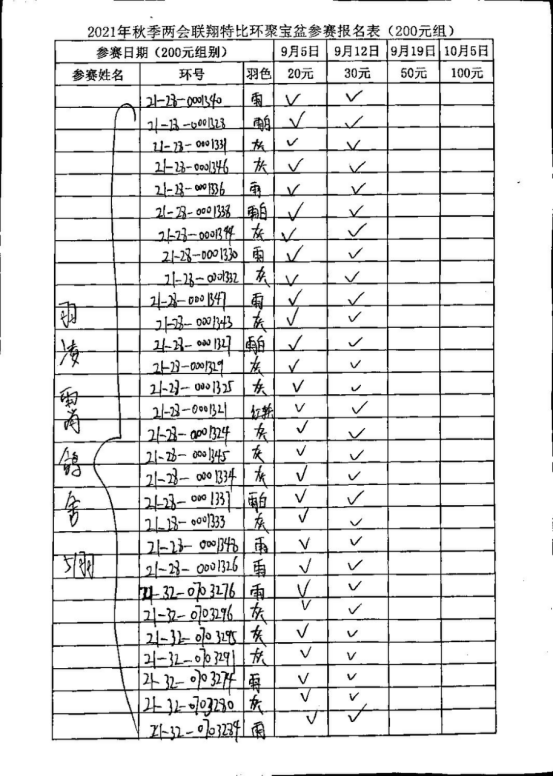 2021年秋季两会联翔特比环聚宝盆参赛报名表（200元组）
参赛日期（200元组别） 9月5日 9月12日 9月19日 10月5日
参赛姓名 环号 羽色 20元 30元 50元 100元
21-28-0001340 雨 ✓ ✓
21-28-0001328 雨白 ✓ ✓
21-28-0001331 灰 ✓ ✓
21-28-0001346 灰 ✓ ✓
21-28-0001336 雨 ✓ ✓
21-28-0001338 雨白 ✓ ✓
21-28-0001344 灰 ✓ ✓
21-28-0001330 雨 ✓ ✓
21-28-0001332 灰 ✓ ✓
21-28-0001347 雨 ✓ ✓
羽 21-28-0001343 灰 ✓ ✓
凌 21-28-0001327 雨白 ✓ ✓
21-28-0001329 灰 ✓ ✓
雨 21-28-0001325 灰 ✓ ✓
21-28-0001321 ✓ ✓
21-28-0001324 灰 ✓ ✓
鸽 21-28-0001345 灰 ✓ ✓
21-28-0001334 灰 ✓ ✓
舍 21-28-0001337 雨白 ✓ ✓
21-28-0001333 灰 ✓ ✓
21-28-0001348 雨 ✓ ✓
51羽 21-28-0001326 雨 ✓ ✓
21-32-0703276 雨 ✓ ✓
21-32-0703296 灰 ✓ ✓
21-32-0703295 灰 ✓ ✓
21-32-0703291 灰 ✓ ✓
21-32-0703274 雨 ✓ ✓
21-32-0703280 灰 ✓ ✓
21-32-0703284 雨 ✓ ✓